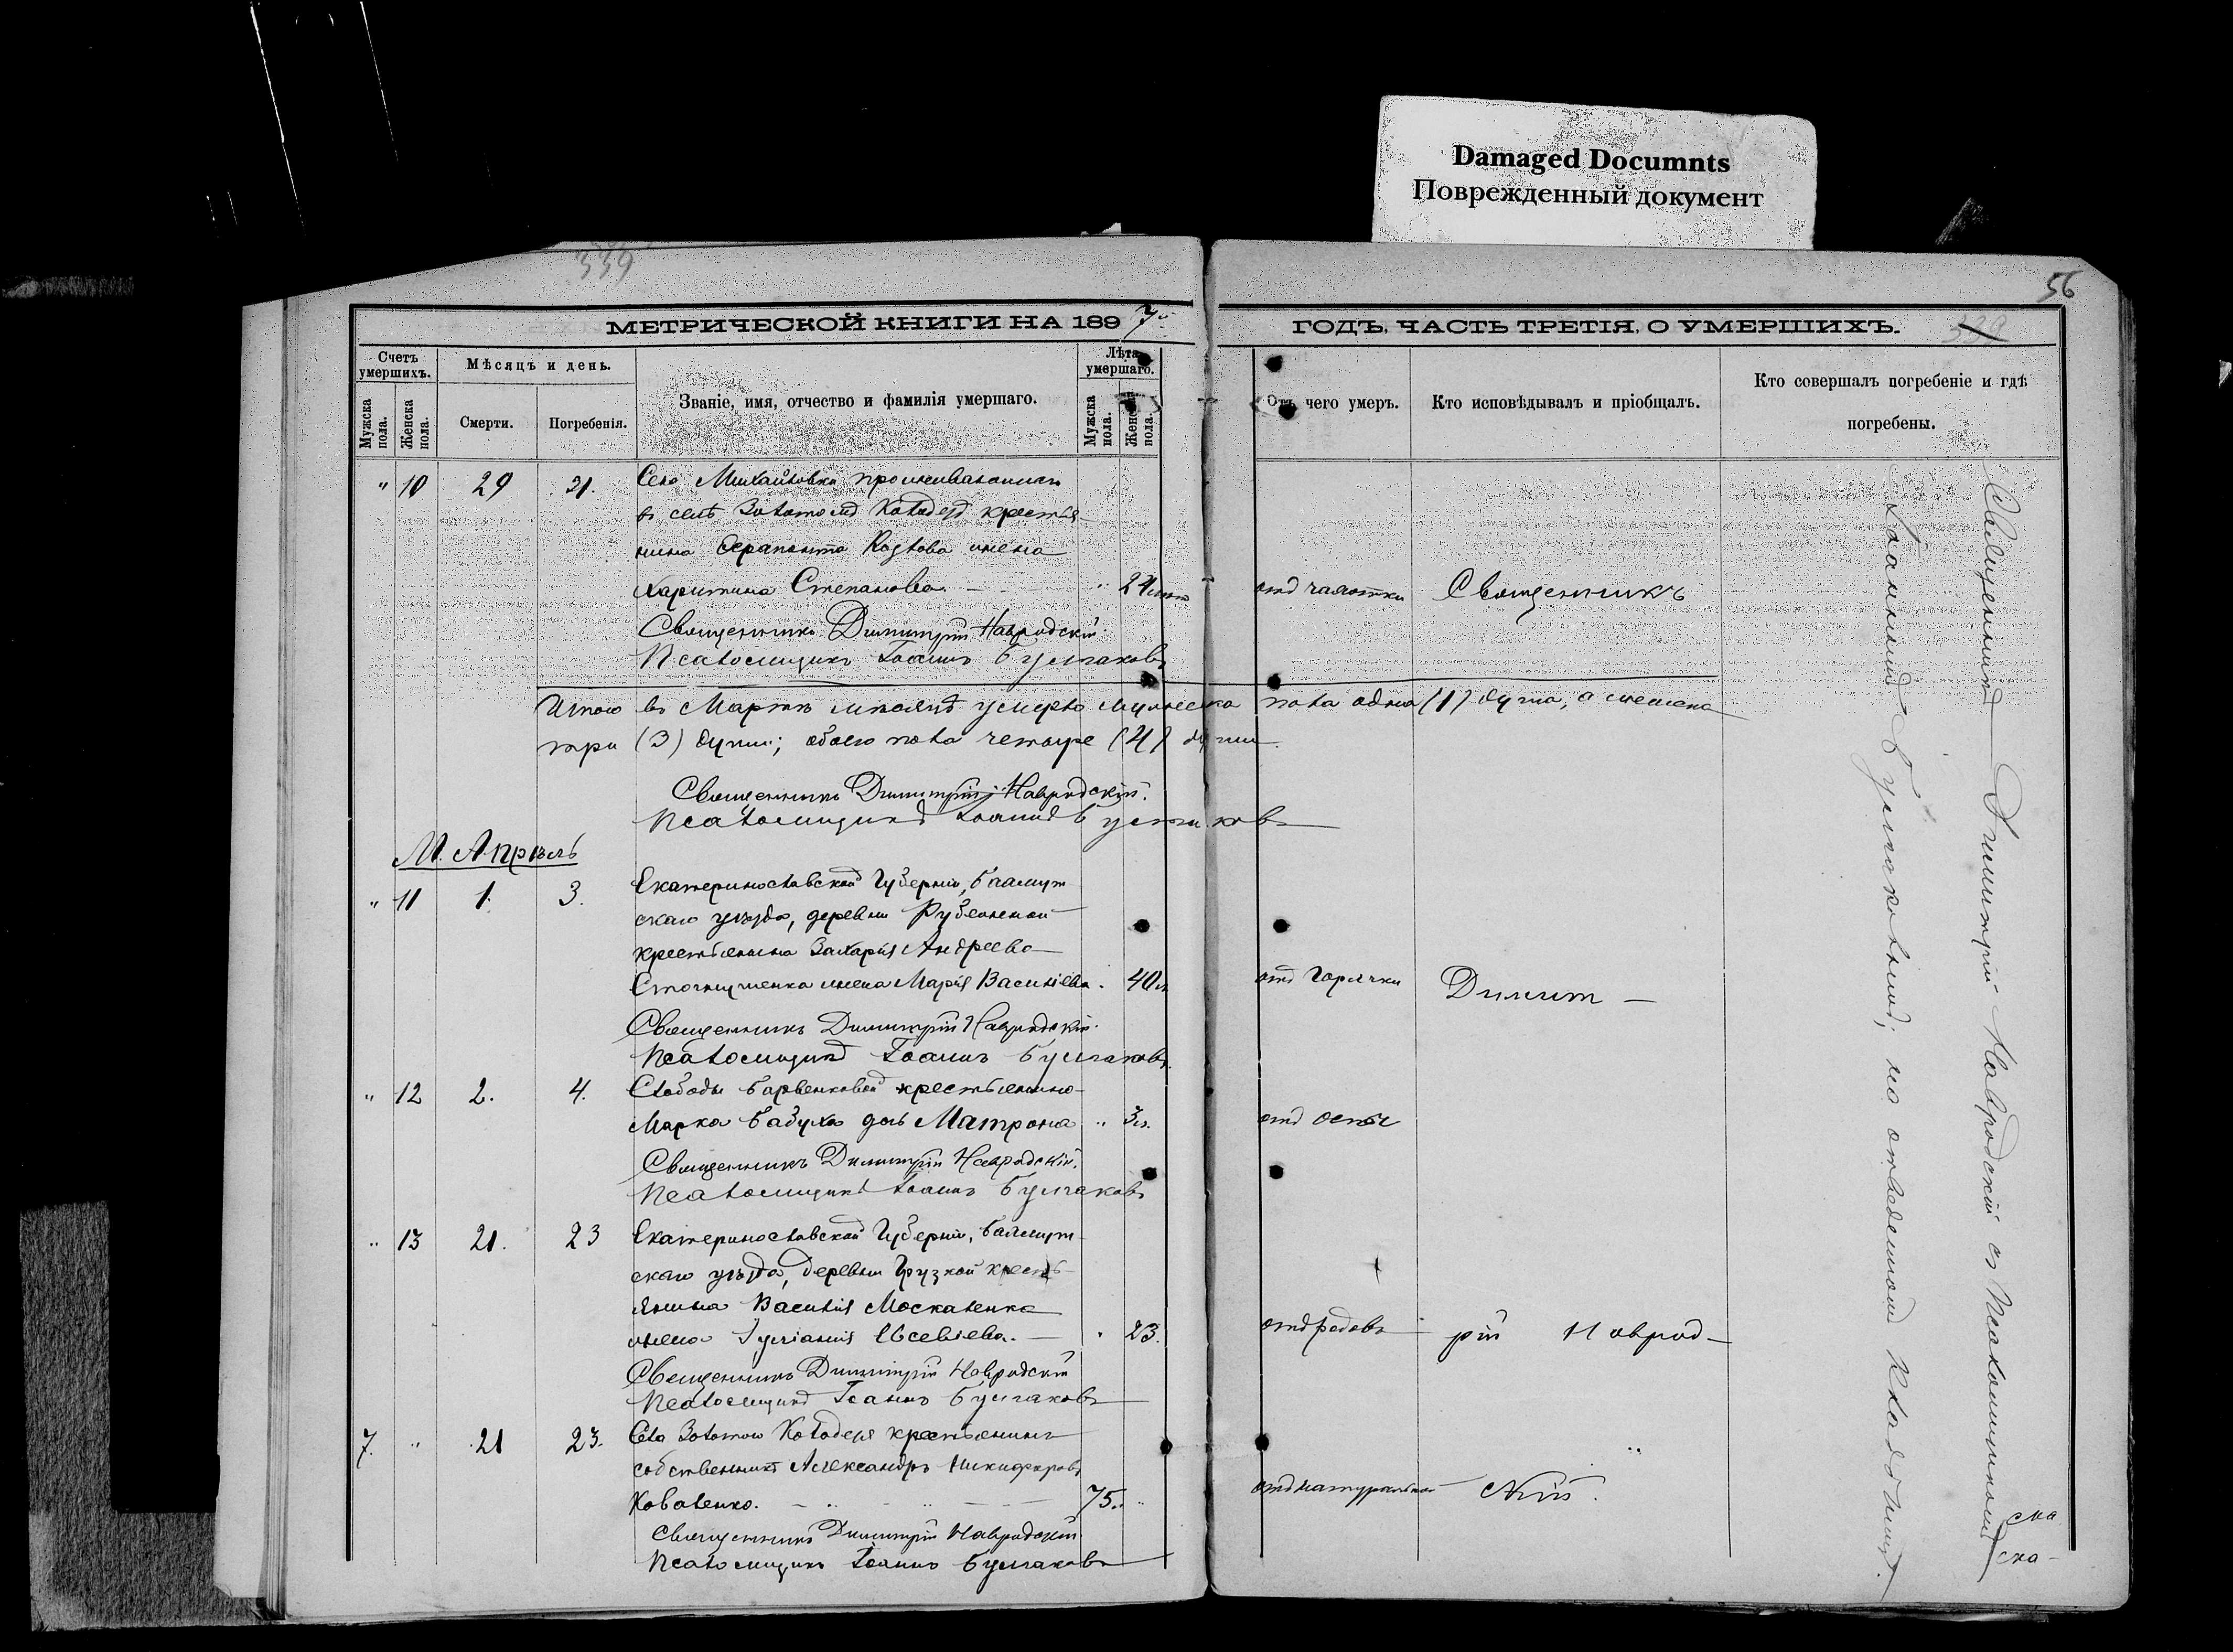 Damaged Documnts
Поврежденный документ
339
56
МЕТРИЧЕСКОЙ КНИГИ НА 1897й
ГОДЪ, ЧАСТЬ ТРЕТІЯ, О УМЕРШИХЪ.
339
Счетъ умершихъ.
Мужска пола.
Женска пола.
Мѣсяцъ и день.
Смерти.
Погребенія.
Званіе, имя, отчество и фамилія умершаго.
Лѣта умершаго.
Мужска пола.
Женска пола.
Отъ чего умеръ.
Кто исповѣдывалъ и пріобщалъ.
Кто совершалъ погребеніе и гдѣ
погребены.
" 10 29 31. Села Михайловки проживающаго
въ селѣ Золотомъ Колодезѣ крестья-
нина Ферапонта Козлова жена
Харитина Степанова. — " 24 лѣт отъ чахотки Священникъ
Священникъ Димитрій Навродскій.
Псаломщикъ Іоаннъ Булгаковъ
Итого въ Мартѣ мѣсяцѣ умерло мужеска пола одна (1) душа, а женска
три (3) души; обоего пола четыре (4) души.
Священникъ Димитрій Навродскій.
Псаломщикъ Іоаннъ Булгаковъ
М. Апрѣль
" 11 1. 3. Екатеринославской Губерніи, Бахмут
скаго уѣзда, деревни Рубежной
крестьянина Захарія Андреева
жена Марія Васильева. 40 л. отъ горячки Димит—
Священникъ Димитрій Навродскій.
Псаломщикъ Іоаннъ Булгаковъ.
" 12 2. 4. Слободы Барвенковой крестьянина
Марка Бабуха дочь Матрона " 3 л. отъ оспы
Священникъ Димитрій Навродскій.
Псаломщикъ Іоаннъ Булгаковъ
" 13 21. 23 Екатеринославской Губерніи, Бахмут-
скаго уѣзда, деревни Грузкой кресть-
янина Василія Москаленка
жена Іуліанія Евсевіева. — " 23. отъ родовъ рій Наврод—
Священникъ Димитрій Навродскій
Псаломщикъ Іоаннъ Булгаковъ
7. " 21 23. Села Золотого Колодезя крестьянинъ
собственникъ Александръ Никифоровъ
Коваленко. — 75. " отъ натуральной скій.
Священникъ Димитрій Навродскій
Псаломщикъ Іоаннъ Булгаковъ
Священникъ Димитрій Навродскій съ Псаломщикомъ
Іоанномъ Булгаковымъ; на отведенномъ кладбищѣ.